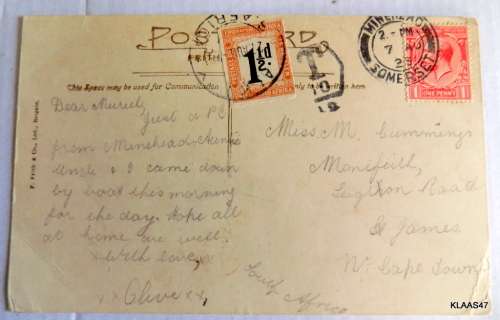 POST CARD
FRITH
This Space may be used for Communication
only to be written here.
F. Frith & Co., Ltd., Reigate.
1½d.
T
10
12
MINEHEAD
2. - PM
7
23
SOMERSET
ONE PENNY
Dear Muriel,
Just a P.C
from Minehead. Auntie
Uncle & I came down
by boat this morning
for the day. Hope all
at home are well.
With love,
xx Olive xx
Miss. M. Cummings
Road
St James
Nr. Cape Town
South Africa
KLAAS47